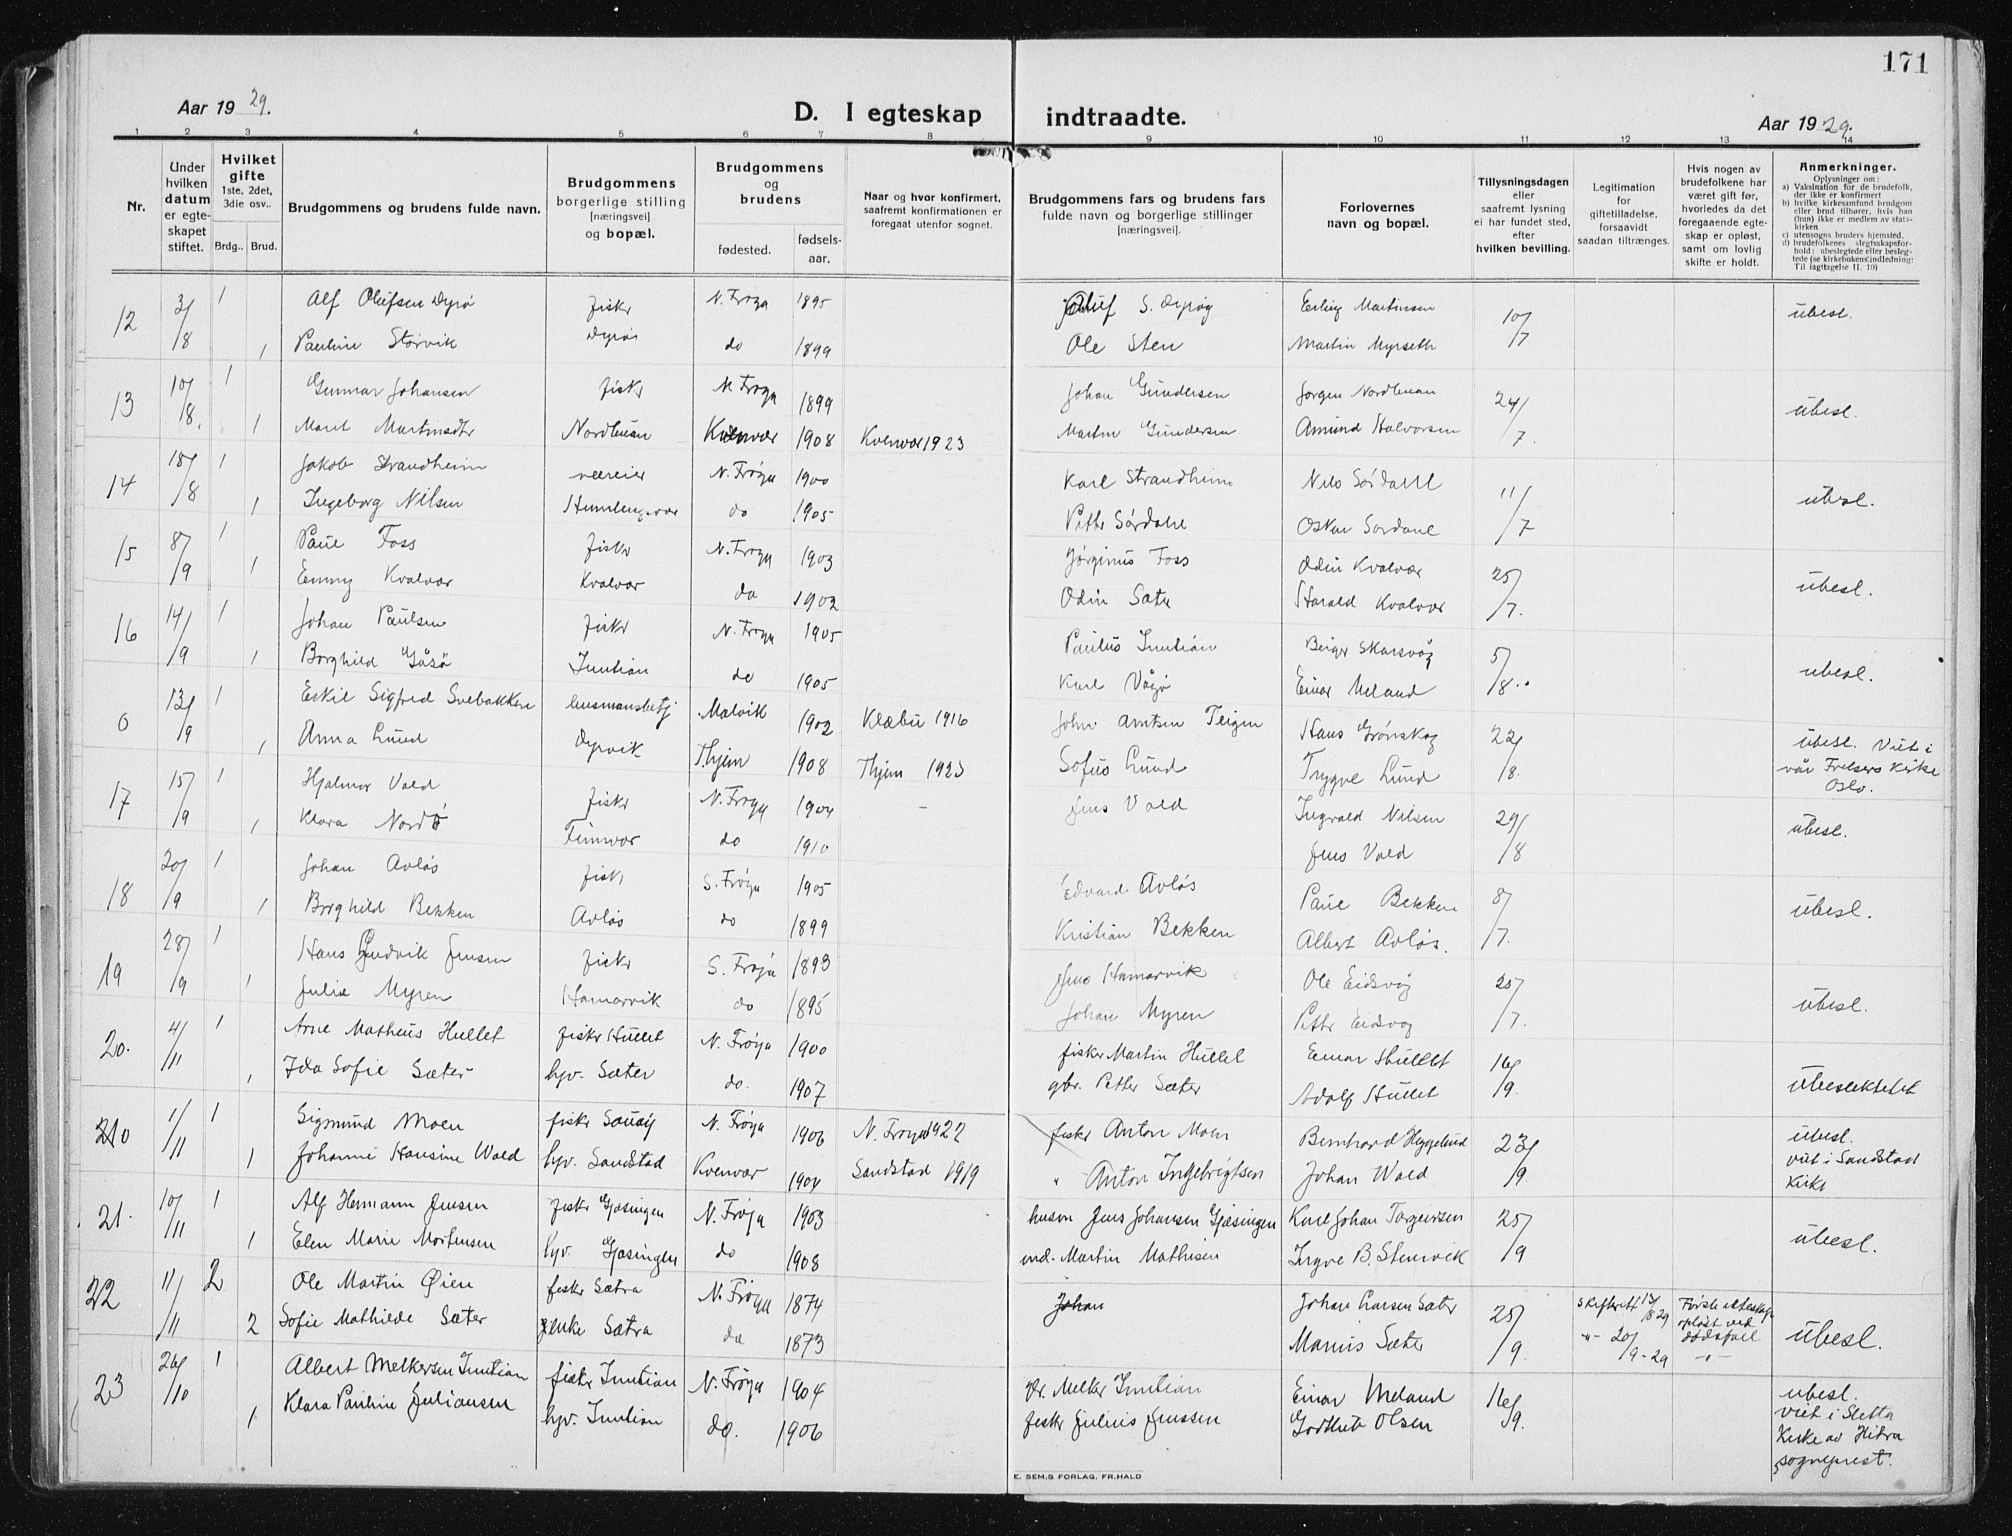 171
Aar 19 29.
D. I egteskap indtraadte.
Aar 19 29.
1 2 3 4 5 6 7 8 9 10 11 12 13 14
Nr.
Under hvilken datum er egteskapet stiftet.
Hvilket gifte 1ste, 2det, 3die osv..
Brdg.. Brud.
Brudgommens og brudens fulde navn.
Brudgommens borgerlige stilling [næringsvei] og bopæl.
Brudgommens og brudens
fødested. fødsels-aar.
Naar og hvor konfirmert, saafremt konfirmationen er foregaat utenfor sognet.
Brudgommens fars og brudens fars fulde navn og borgerlige stillinger [næringsvei].
Forlovernes navn og bopæl.
Tillysningsdagen eller saafremt lysning ei har fundet sted, efter hvilken bevilling.
Legitimation for giftetilladelse, forsaavidt saadan tiltrænges.
Hvis nogen av brudefolkene har været gift før, hvorledes da det foregaaende egteskap er opløst, samt om lovlig skifte er holdt.
Anmerkninger.
Oplysninger om:
a) Vaksination for de brudefolk, der ikke er konfirmert
b) hvilke kirkesamfund brudgom eller brud tilhører, hvis han (hun) ikke er medlem av statskirken
c) utensogns bruders hjemsted.
d) brudefolkenes slegtsskapsforhold: ubeslegtede eller beslegtede (se kirkebokens indledning: Til iagttagelse II. 10)
12 3/8 1 Alf Olufsen Dyrø fisker N. Frøya 1895 Oluf S. Dyrøy Erling Martinsen 10/7 ubesl.
1 Pauline Storvik Dyrøi do 1899 Ole Sten Martin Myrseth
13 10/8. 1 Gunnar Johansen fiskr N. Frøya 1899 Johan Gundersen Jørgen Nordhuan 24/7. ubesl.
1 Marit Martinsdtr Nordhuan Kvenvær 1908 Kvenvær 1923 Martin Gundersen Amund Halvorsen
14 18/8 1 Jakob Strandheim væreier N. Frøya 1900 Karl Strandheim Nils Sørdahl 11/7 ubesl.
1 Ingeborg Nilsen Humlingsvær do 1905 Petter Sørdahl Oskar Sørdahl
15 8/9 1 Paul Foss fiskr N. Frøya 1903 Jørginus Foss Odin Kvalvær 25/7. ubesl.
1 Emmy Kvalvær Kvalvær do 1902 Odin Sæter Harald Kvalvær
16 14/9 1 Johan Paulsen fiskr N. Frøya 1905 Paulus Inntian Birger Skarsvåg 5/8. ubesl.
1 Borghild Gåsø Inntian do 1905 Karl Einar Meland
0 13/9 1 Eskil Sigfred Svebakken lensmansbetj. Malvik 1902 Klæbu 1916 John Arntsen Teigen Hans Grønskag 22/8. ubesl. Viet i
1 Anna Lund Dyrvik Thjem 1908 Thjem 1923 Sofus Lund Trygve Lund vår Frelsers Kirke
Oslo.
17 15/9 1 Hjalmar Vald fiskr N. Frøya 1904 Jens Vald Ingvald Nilsen 29/8 ubesl.
1 Klara Nordø Finnvær do 1910 Jens Vald
18 20/9 1 Johan Avløs fiskr S. Frøya 1905 Edvard Avløs Paul Bekken 8/7. ubesl.
1 Borghild Bekken Avløs do 1899 Kristian Bekken Albert Avløs.
19 28/9 1 Hans Ludvik Jensen fiskr S. Frøya 1893 Jens Hamarvik Ole Eidsvåg 25/7. ubesl.
1 Julie Myren Hamarvik do 1895 Johan Myren Petter Eidsvåg
20. 4/11 1 Arne Matheus Hullet fiskr Hullet N. Frøya 1900 fisker Martin Hullet Einar Hullet 16/9. ubeslektetet
1 Ida Sofie Sæter hjv. Sæter do. 1907 gbr. Petter Sæter Adolf Hullet
0 1/11 1 Sigmund Moen fiskr N. Frøya 1906 N. Frøya 1922 fiskr Anton Moen Bernhard Heggelund 23/9. ubesl.
1 Johanne Hansine Wold hjv. Sandstad Kvenvær 1904 Sandstad 1919 " Anton Ingebrigtsen Johan Wold viet i Sandstad
Kirke
21. 10/11 1 Alf Hermann Jensen fiskr Gjæsingen N. Frøya 1903 Jens Johansen Gjæsingen Karl Johan Torgersen 25/9 ubesl.
1 Elen Marie Mortensen hjv. Gjæsingen do 1908 Martin Mathisen Ingve B. Stenvik
22 11/11 2 Ole Martin Øien fiskr Sætra N. Frøya 1874 Johan Johan Larsen Sæter 25/9. Skifterett 13/8 29 Første ekteskap opløst ved dødsfall ubesl.
2 Sofie Mathilde Sæter enke Sætra do 1873 Marius Sæter -"- 20/9-29 -"-
23 26/10 1 Albert Melkersen Inntian fiskr Inntian N. Frøya 1904 Melker Inntian Einar Meland 16/9. ubesl.
1 Klara Pauline Juliansen hjv. Inntian do. 1906 fiskr Julius Jenssen Olsen viet i Sletta
Kirke av Hitra
sogneprest.
E. SEM.S FORLAG. FR.HALD